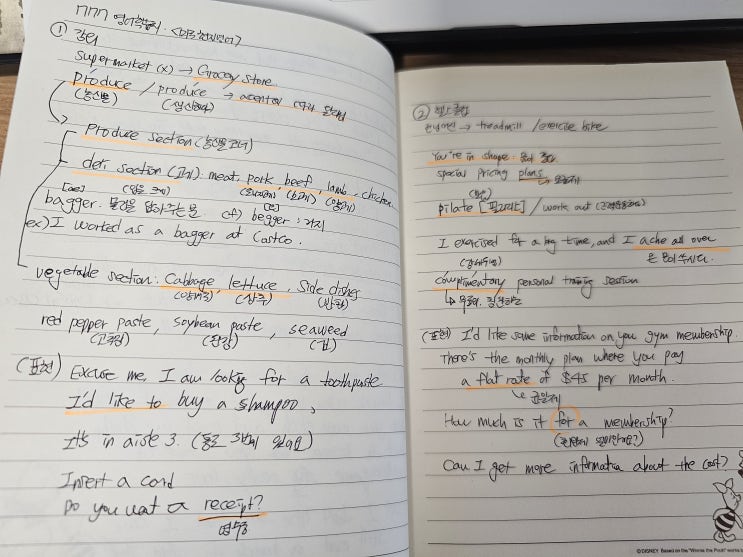 777 영어학습지 <미국 현지언어>
① 마켓
Supermarket (x) → Grocery Store
próduce / prodúce → accent에 따라 달라짐
(농산물) (생산하다)
Produce section (농산물 코너)
deli section (고기) : meat, pork, beef, lamb, chicken
(돼지고기) (소고기) (양고기)
bagger : 물건을 담아주는 분. cf) begger : 거지
ex) I worked as a bagger at Costco.
vegetable section : Cabbage, lettuce, Side dishes
(양배추) (상추) (반찬)
red pepper paste, soybean paste, seaweed
(고추장) (된장) (김)
(표현) Excuse me, I am looking for a toothpaste
I'd like to buy a shampoo,
It's in aisle 3. (통로 3번에 있어요)
Insert a card
Do you want a receipt?
영수증
② 헬스클럽
런닝머신 → treadmill / exercise bike
You're in shape : 몸이 좋다
special pricing plans
pilate [필라테] / work out
I exercised for a long time, and I ache all over
온몸이 쑤시다.
complimentary personal training session
↳ 무료의
(표현) I'd like some information on you gym membership.
There's the monthly plan where you pay
a flat rate of $45 per month.
↳ 균일가
How much is it for a membership?
(회원권이 얼마인가요?)
Can I get more information about the cost?
©DISNEY Based on the "Winnie the Pooh" works